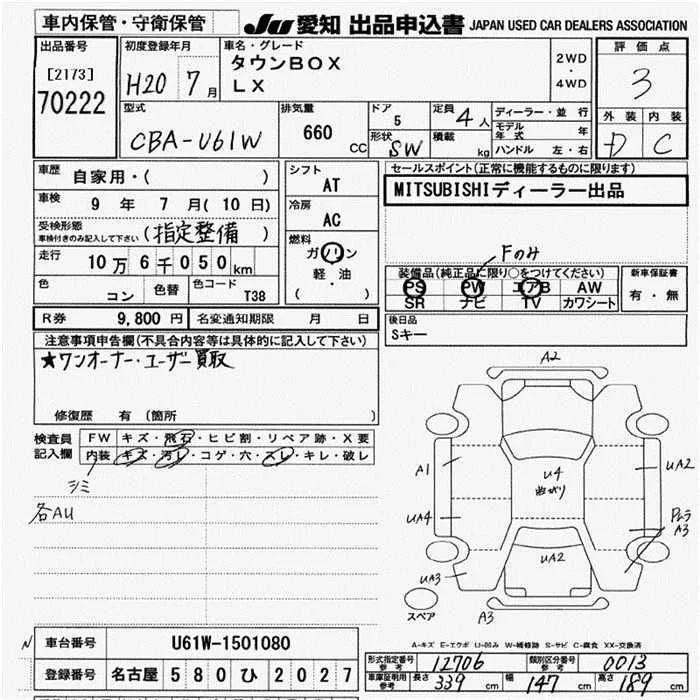 車内保管・守衛保管
JU 愛知 出品申込書 JAPAN USED CAR DEALERS ASSOCIATION
出品番号
[2173]
70222
初度登録年月
H20 7月
車名・グレード
タウンBOX
LX
2WD
・
4WD
評価点
3
外装 内装
D C
型式
CBA-U61W
排気量
660 CC
ドア
5
形状
SW
定員 4人
積載 kg
ディーラー・並行
モデル年式 年
ハンドル 左・右
車歴 自家用・( )
車検 9 年 7 月(10 日)
受検形態
車検付きのみ記入して下さい (指定整備)
走行 10万6千050km
色 コン 色替 色コード T38
シフト
AT
冷房
AC
燃料
ガソリン
軽・油
( )
セールスポイント(正常に機能するものに限ります)
MITSUBISHIディーラー出品
Fのみ
装備品(純正品に限り○をつけてください)
PS PW エアB AW
SR ナビ TV カワシート
新車保証書
有・無
後日品
Sキー
R券 9,800 円 名変通知期限 月 日
注意事項申告欄(不具合内容等は具体的に記入して下さい)
★ワンオーナー・ユーザー買取
修復歴 有 (箇所 )
検査員
記入欄
FW キズ・飛石・ヒビ割・リペア跡・X要
内装 キズ・汚レ・コゲ・穴・スレ・キレ・破レ
シミ
各AU
A2
A1
U4
曲がり
UA2
UA4
Rムラ
A3
UA2
UA3
スペア
A3
A-キズ E-エクボ U-凹み W-補修跡 S-サビ C-腐食 XX-交換済
車台番号 U61W-1501080
登録番号 名古屋 580 ひ 2027
N
形式指定番号
参考 12706
類別区分番号
参考 0013
車庫証明用
参考 長さ 339 cm 幅 147 cm 高さ 189 cm